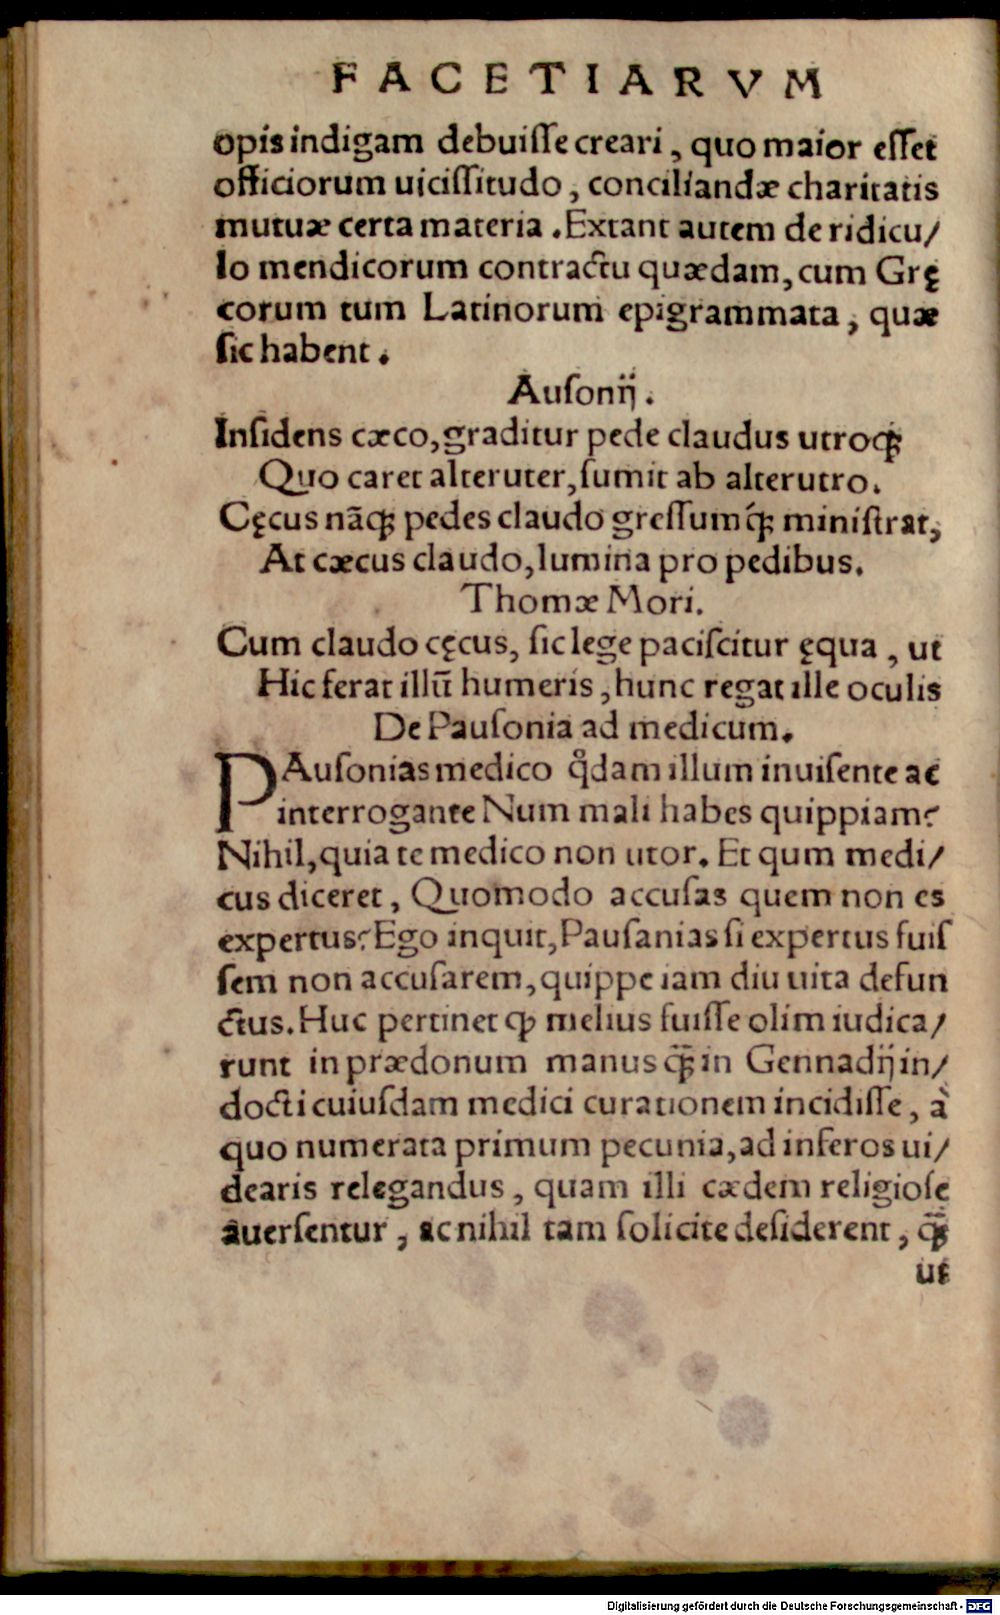 FACETIARVM
opis indigam debuiſſe creari, quo maior eſſet
officiorum uiciſſitudo, conciliandæ charitatis
mutuæ certa materia. Extant autem de ridicu/
lo mendicorum contractu quædam, cum Grę
corum tum Latinorum epigrammata, quæ
ſic habent.
Auſonij.
Inſidens cæco, graditur pede claudus utroqꝫ
Quo caret alteruter, ſumit ab alterutro.
Cęcus nãqꝫ pedes claudo greſſumq́ꝫ miniſtrat,
At cæcus claudo, lumina pro pedibus.
Thomæ Mori.
Cum claudo cęcus, ſic lege paciſcitur ęqua, ut
Hic ferat illũ humeris, hunc regat ille oculis
De Pauſonia ad medicum.
PAuſonias medico qͦdam illum inuiſente ac
interrogante Num mali habes quippiam?
Nihil, quia te medico non utor. Et qum medi/
cus diceret, Quomodo accuſas quem non es
expertus? Ego inquit, Pauſanias ſi expertus fuiſ
ſem non accuſarem, quippe iam diu uita defun
ctus. Huc pertinet ꝙ melius fuiſſe olim iudica/
runt in prædonum manus q̃ꝫ in Gennadij in/
docti cuiuſdam medici curationem incidiſſe, à
quo numerata primum pecunia, ad inferos ui/
dearis relegandus, quam illi cædem religioſe
auerſentur, ac nihil tam ſolicite deſiderent, q̃ꝫ
ut
Digitalisierung gefördert durch die Deutsche Forschungsgemeinschaft - DFG